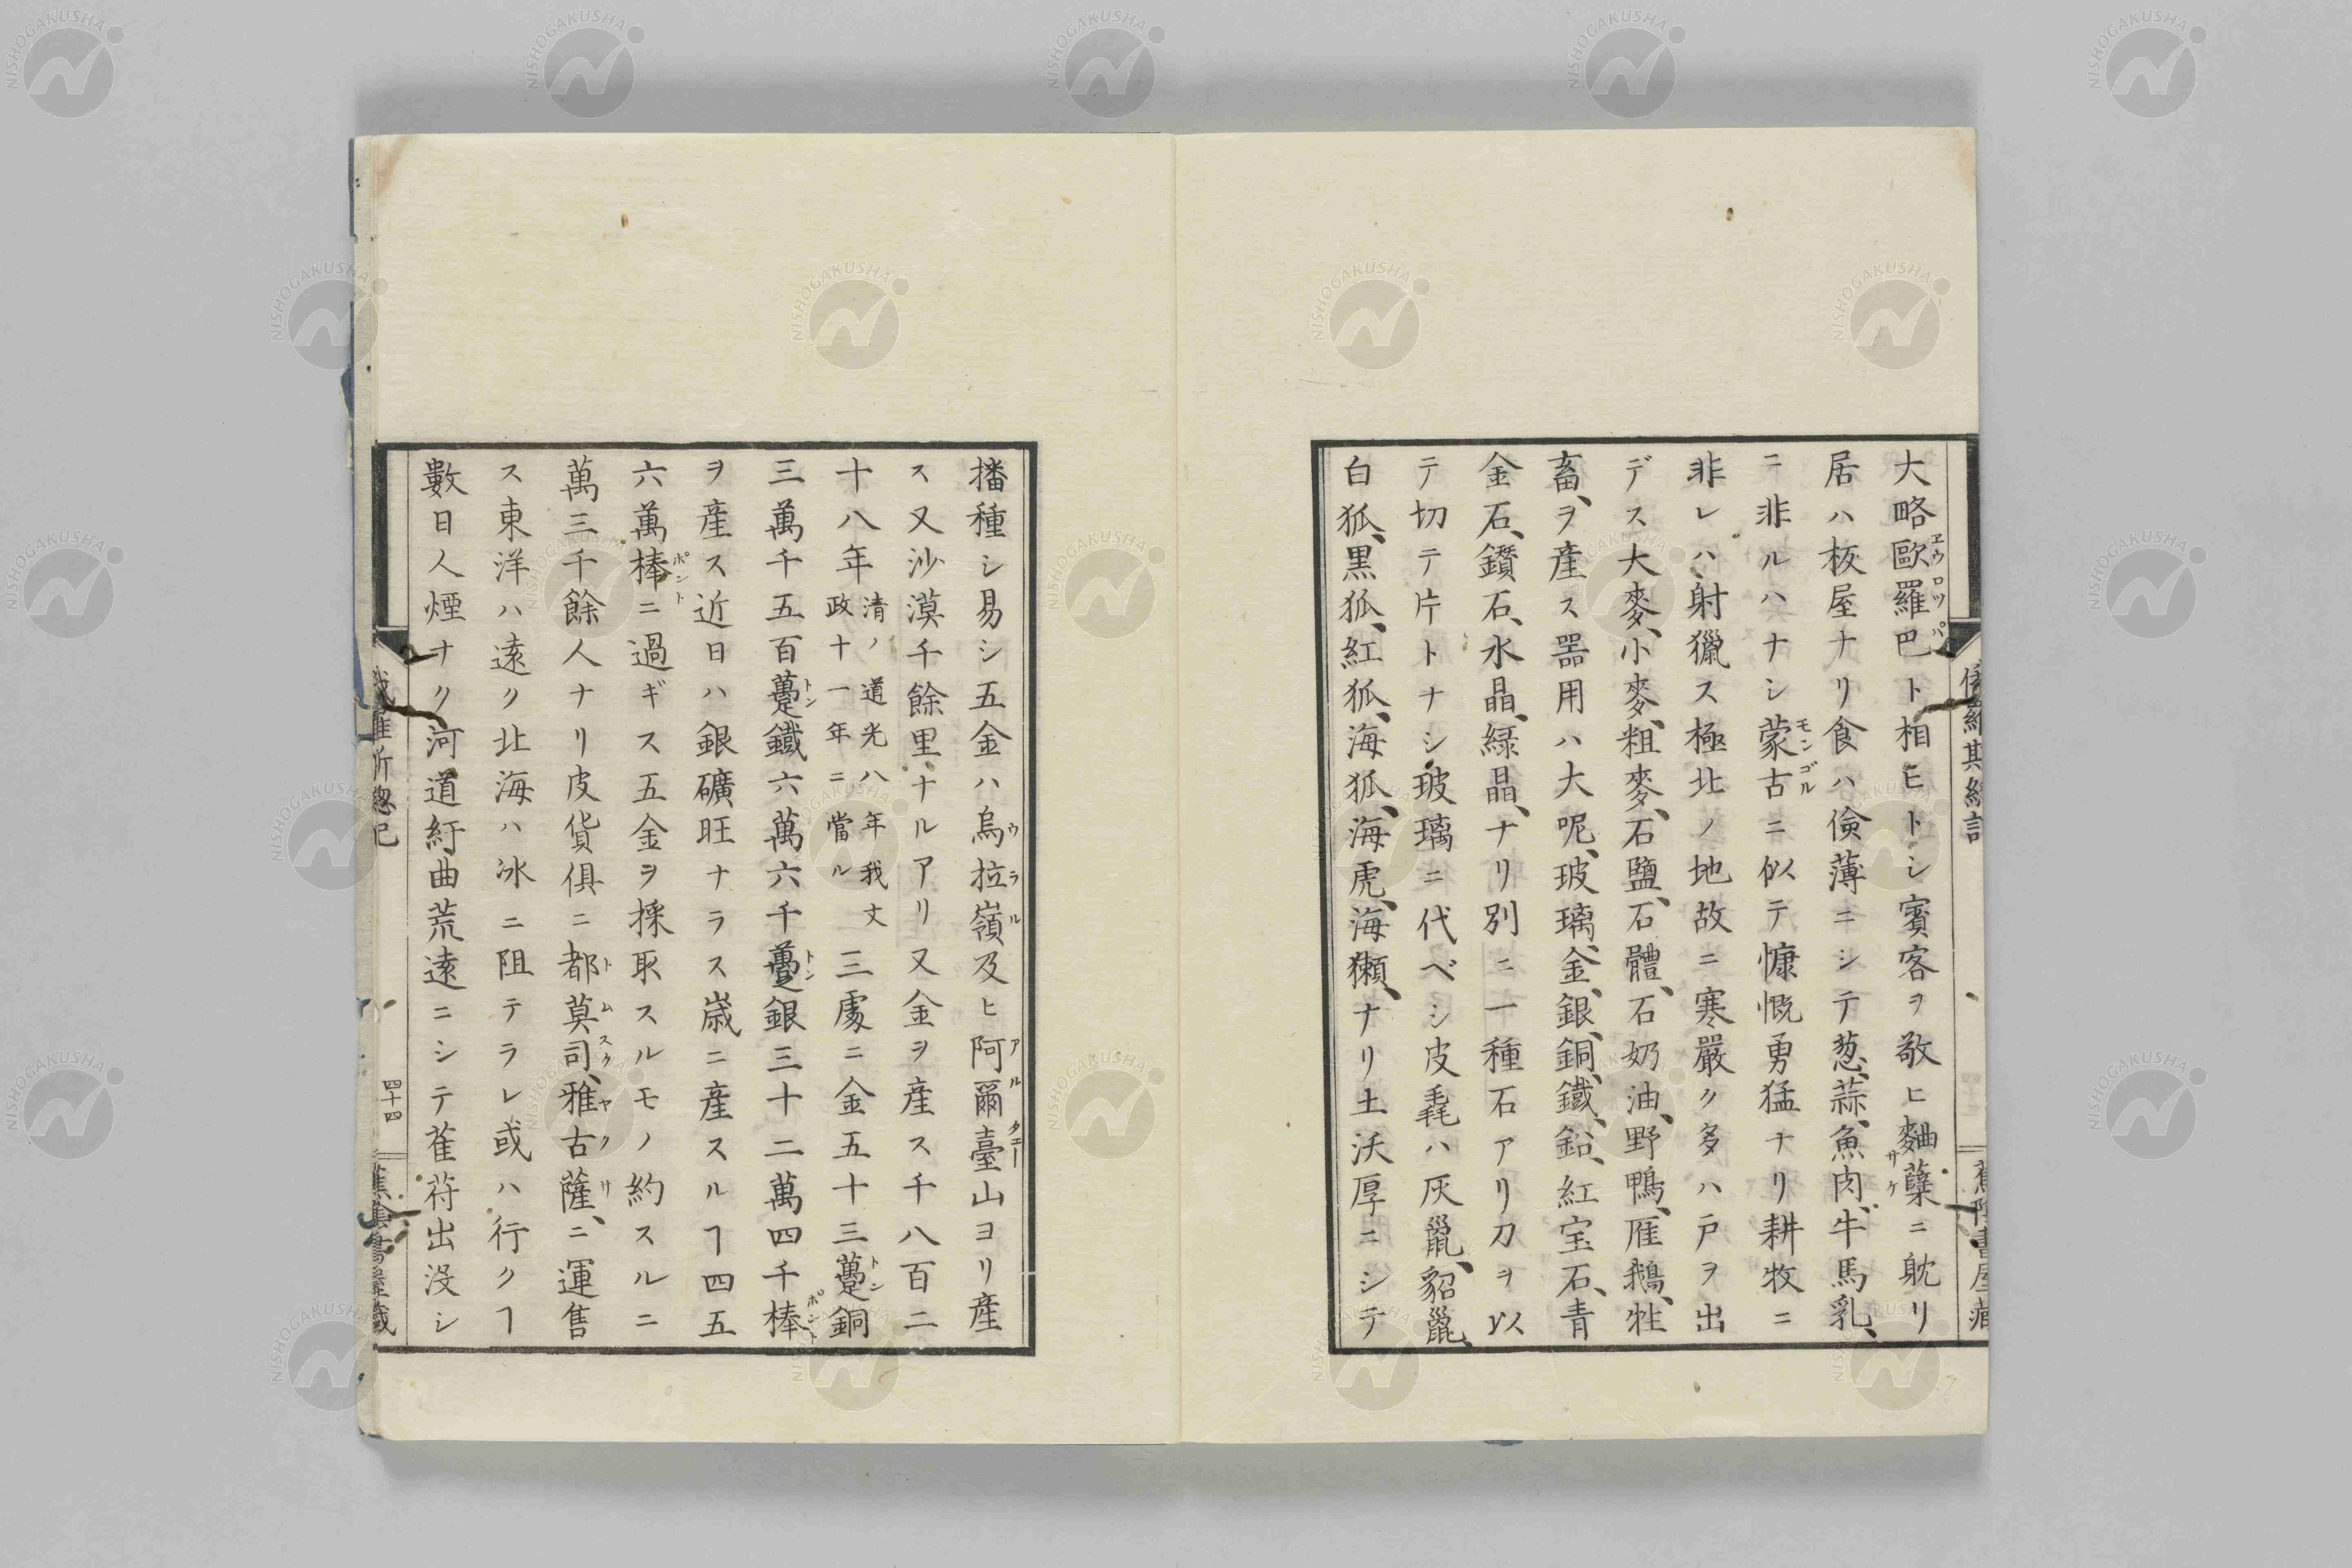 大略歐羅巴ト相ヒトシ賓客ヲ敬ヒ麯蘖ニ躭リ
居ハ板屋ナリ食ハ儉薄ニシテ葱、蒜、魚肉、牛馬乳、
ニ非ルハナシ蒙古ニ似テ慷慨勇猛ナリ耕牧ニ
非レハ、射獵ス極北ノ地故ニ寒嚴ク多ハ戸ヲ出
デス大麥、小麥、粗麥、石鹽、石體、石奶油、野鴨、雁鵝、牲
畜、ヲ産ス噐用ハ大呢、玻璃、金、銀、銅、鐵、鉛、紅宝石、青
金石、鑽石、水晶、緑晶、ナリ別ニ一種石アリ刀ヲ以
テ切テ片トナシ玻璃ニ代ベシ皮毳ハ灰鼠、貂鼠、
白狐、黒狐、紅狐、海狐、海虎、海獺、ナリ土沃厚ニシテ
播種シ易シ五金ハ烏拉嶺及ヒ阿爾臺山ヨリ産
ス又沙漠千餘里ナルアリ又金ヲ産ス千八百二
十八年清ノ道光八年我文政十一年ニ當ル三處ニ金五十三躉銅
三萬千五百躉鐵六萬六千躉銀三十二萬四千棒
ヲ産ス近日ハ銀礦旺ナラス嵗ニ産スルヿ四五
六萬棒ニ過ギス五金ヲ採取スルモノ約スルニ
萬三千餘人ナリ皮貨俱ニ都莫司、雅古薩、ニ運售
ス東洋ハ遠ク北海ハ冰ニ阻テラレ或ハ行クヿ
數日人煙ナク河道紆曲荒遠ニシテ萑苻出没シ
四十四
NISHOGAKUSHA